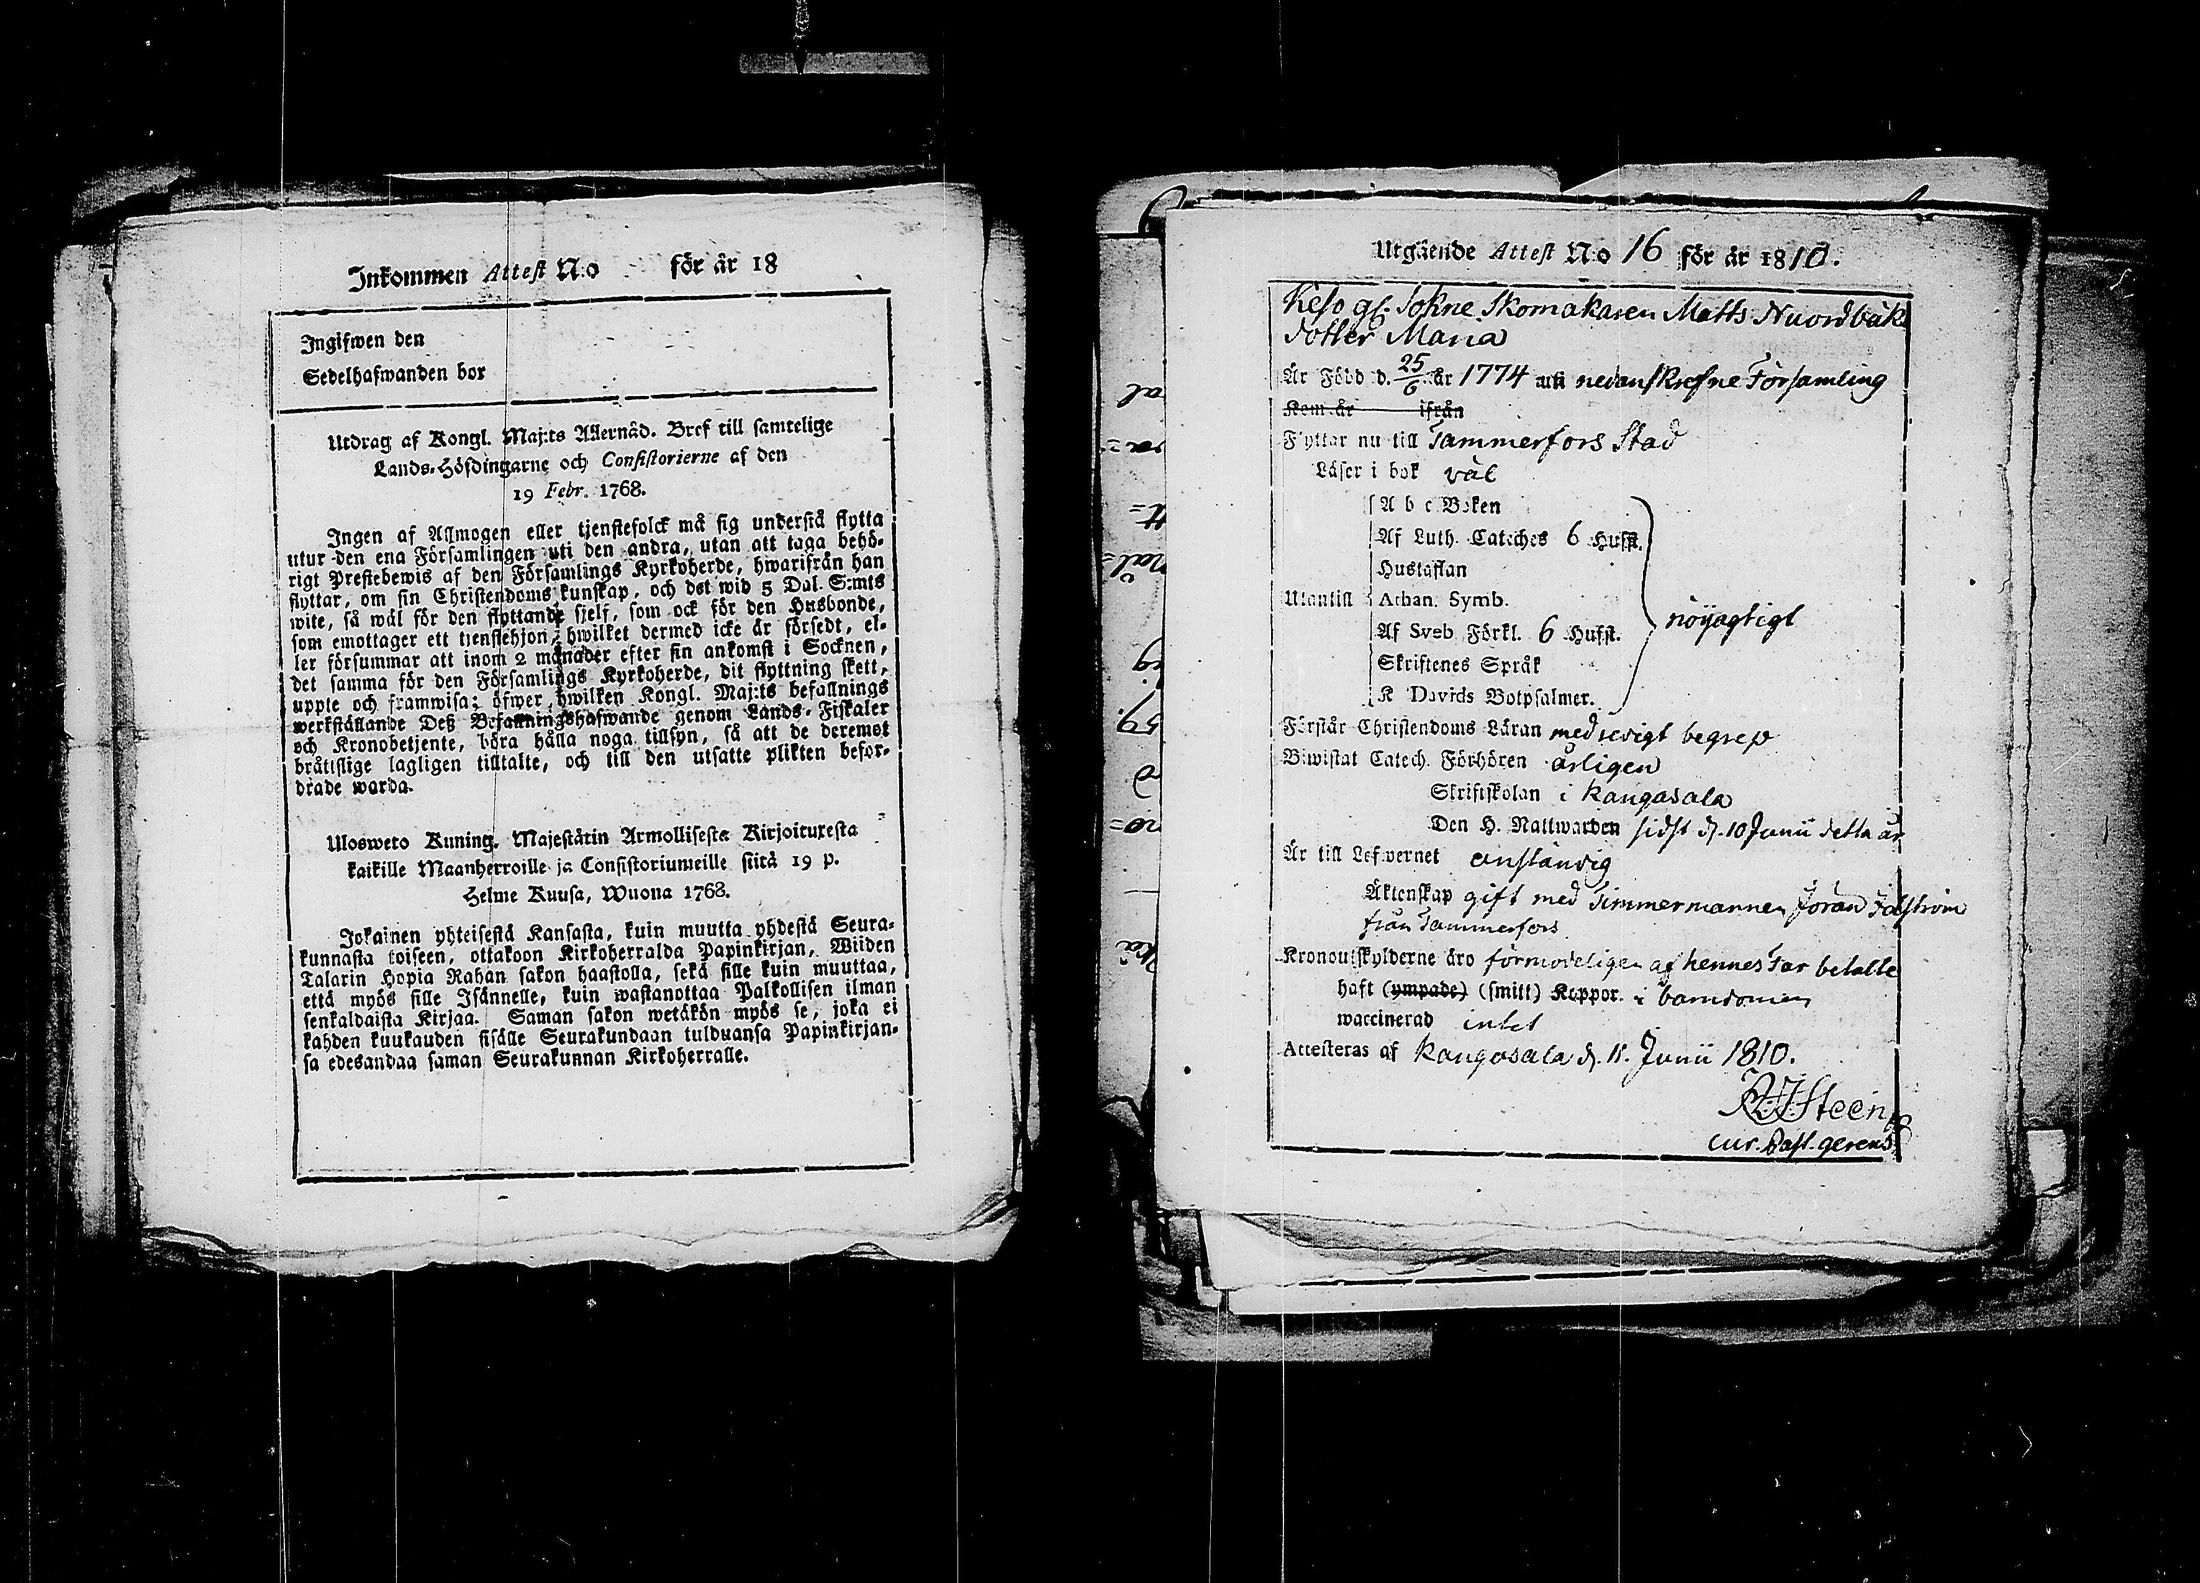 Inkommen Attest N:o för år 18
Ingifwen den
Sedelhafwanden bor
Utdrag af Kongl. Maj:ts Allernåd. Bref till samtelige
Lands-Höfdingarne och Consistorierne af den
19 Febr. 1768.
Ingen af Allmogen eller tjenstefolck må sig understå flytta
utur den ena Församlingen uti den andra, utan att taga behö-
rigt Prestebewis af den Församlings Kyrkoherde, hwarifrån han
flyttar, om sin Christendoms kunskap, och det wid 5 Dal. S:mts
wite, så wäl för den flyttande sjelf, som ock för den Husbonde,
som emottager ett tjenstehjon, hwilket dermed icke är försedt, el-
ler försummar att inom 2 månader efter sin ankomst i Socknen,
det samma för den Församlings Kyrkoherde, dit flyttning skett,
uppte och framwisa; öfwer hwilken Kongl. Maj:ts befallnings
werkställande Deß Befallningshafwande genom Lands-Fiskaler
och Kronobetjente, böra hålla noga tillsyn, så att de deremot
bråttslige lagligen tilltalte, och till den utsatte plikten befor-
drade warda.
Ulosweto Kuning. Majestätin Armollisesta Kirjoituxesta
kaikille Maanherroille ja Consistoriumeille siitä 19 p.
Helme Kuusa, Wuona 1768.
Jokainen yhteisestä Kansasta, kuin muutta yhdestä Seura-
kunnasta toiseen, ottakoon Kirkoherralda Papinkirjan, Wiiden
Talarin Hopia Rahan sakon haastolla, sekä sille kuin muuttaa,
että myös sille Isännelle, kuin wastanottaa Palkollisen ilman
senkaldaista Kirjaa. Saman sakon wetäkön myös se, joka ei
kahden kuukauden sisälle Seurakundaan tulduansa Papinkirjan-
sa edesandaa saman Seurakunnan Kirkoherralle.
Utgående Attest N:o 16 för år 1810.
Keso gl: Sokne Skomakaren Matts Nuordbäk
dotter Maria
Är Född d. 25/6 år 1774 uti nedanskrefne Församling
Kom år ifrån
Flyttar nu till Tammerfors Stad
Läser i bok väl
A b c Boken
Af Luth. Cateches 6 Hufst.
Hustaflan
Utantill Athan. Symb.
Af Sveb. Förkl. 6 Hufst.
Skriftenes Språk
K Davids Botpsalmer.
nöyagtigt
Förstår Christendoms Läran medrerigt begrep
Biwistat Catech. Förhören årligen
Skriftskolan i Kangasala
Den H. Nattwarden sidst d. 10 Junii detta år
Är till Lefwernet anständig
Äktenskap gift med Timmermannen Jöran Falström
från Tammerfors
Kronoutskylderne äro förmodeligen af hennes Far betalte
haft (ympade) (smitt) Koppor. i barndomen
waccinerad intet
Attesteras af Kangasala d. 11. Junii 1810.
Steen
cur. Past. gerens